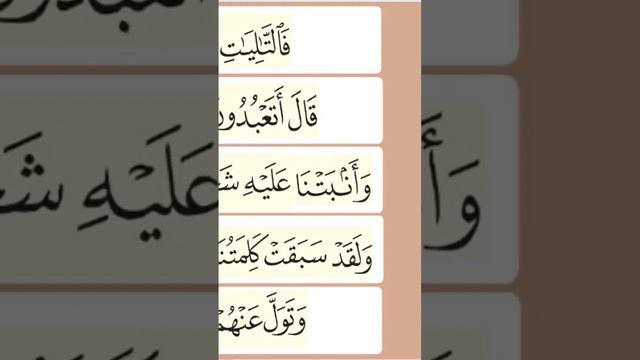 فَٱلتَّـٰلِيَـٰتِ
قَالَ أَتَعْبُدُونَ
وَأَنۢبَتْنَا عَلَيْهِ شَ
وَلَقَدْ سَبَقَتْ كَلِمَتُنَا
وَتَوَلَّ عَنْهُمْ